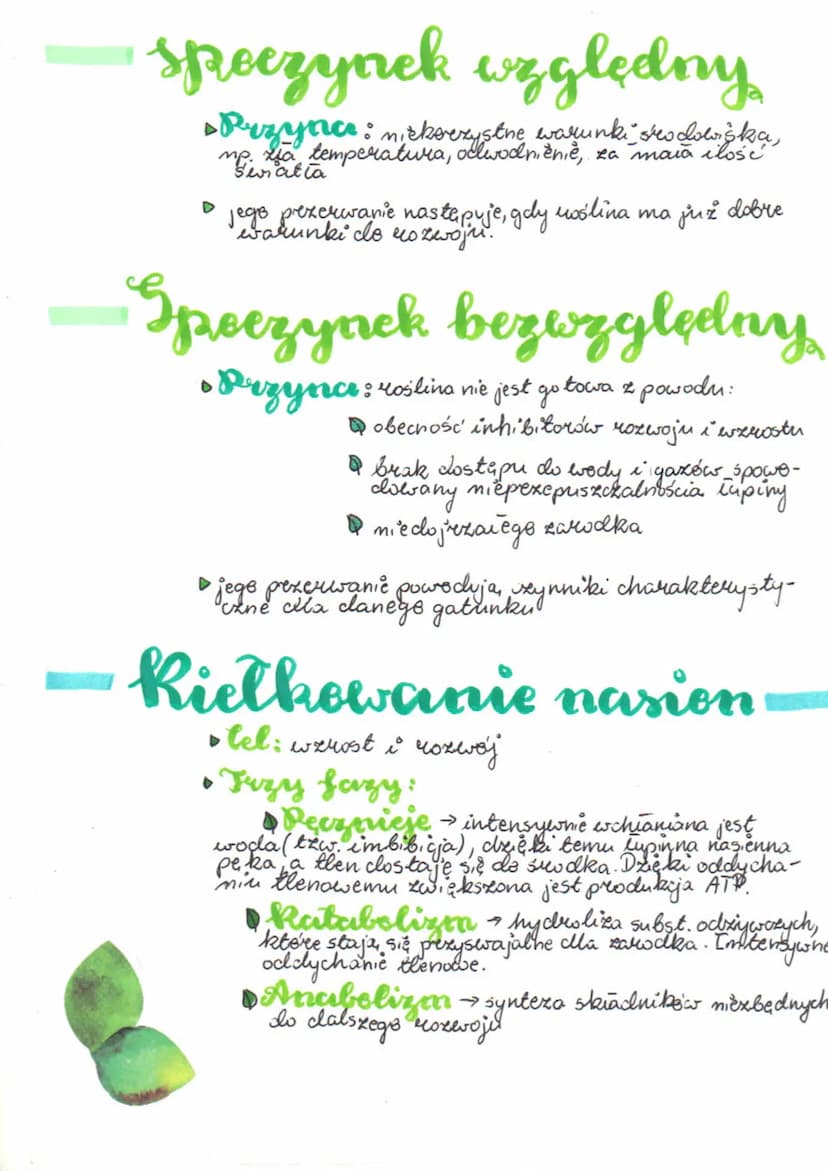 spoczynek względny
Przyna: niekorzystne warunki środowiska,
np. zła temperatura, odwodnienie, za mała ilość
światła
jego przerwanie następuje, gdy roślina ma już dobre
warunki do rozwoju.
Spoczynek bezwzględny
Przyna: roślina nie jest gotowa z powodu:
obecność inhibitorów rozwoju i wzrostu
brak dostępu do wody i gazów spowo-
dowany nieprzepuszczalnością łupiny
niedojrzałego zarodka
jego przerwanie powodują czynniki charakterysty-
czne dla danego gatunku
Kiełkowanie nasion
Cel: wzrost i rozwój
Trzy fazy:
Pęcznieje → intensywnie wchłaniana jest
woda (tzw. imbibicja), dzięki temu łupinna nasienna
pęka, a tlen dostaję się do środka. Dzięki oddycha-
niu tlenowemu zwiększona jest produkcja ATP.
Katabolizm → hydroliza subst. odżywczych,
które stają się przyswajalne dla zarodka. Intensywne
oddychanie tlenowe.
Anabolizm → synteza składników niezbędnych
do dalszego rozwoju